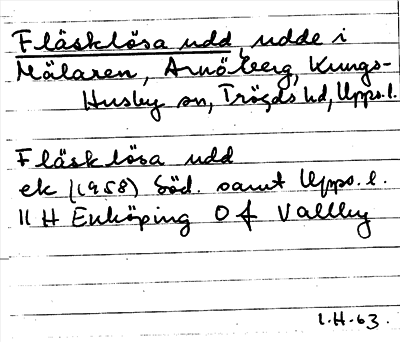 Fläsklösa udd, udde i
Mälaren, Arnöberg, Kungs-
Husby sn, Trögds hd, Upps. l.
Fläsklösa udd
ek (1958) Söd. samt Upps. l.
11 H Enköping 0 f Vallby
I.H.63.